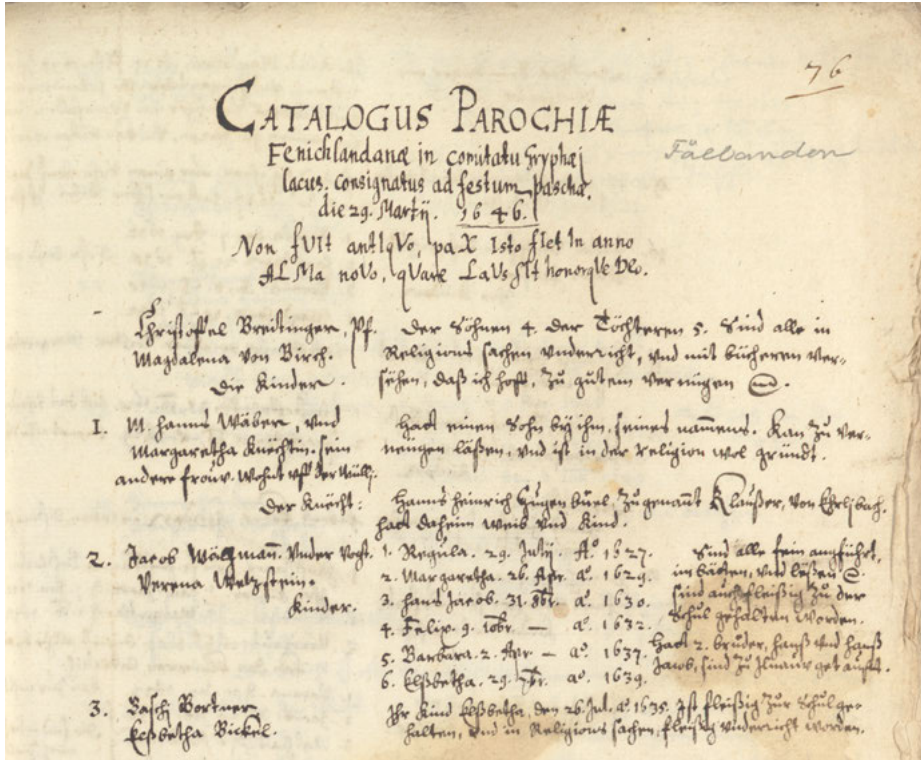 76
CATALOGUS PAROCHIÆ
Fällanden
Fenichlandanæ in comitatu Gryphæj
lacus. consignatus ad festum paschæ.
die 29. Martij. 1646.
Non fUIt antIqVo, paX Isto flet In anno
ALMa noVo, qVare LaVs sIt honorqVe Deo.
Christoffel Breitinger, Pf.
Magdalena von Birch.
Die Kinder.
Der Söhnen 4. der Töchteren 5. Sind alle in
Religions sachen vnderricht, vnd mit bücheren ver-
sehen, daß ich hoff, zu gutem vernügen
1. M. Hanns Wäber, vnd
Margaretha Knechtin. sein
andere frouw. wohnt vff der Mülli.
Hatt einen Sohn by ihm, seines nammens. Kan zu ver-
nuegen läsen, vnd ist in der religion wol gründt.
Der Knecht: Hanns Heinrich Hugenbüel, zugenannt Klauser, von Ehrlibach.
hatt daheim weib vnd Kind.
2. Jacob Wällmann. Vnder Vogt.
Verena Wetzstein.
Kinder.
1. Regula. 29. Julij. Aº 1627.
2. Margaretha. 26. Apr. aº. 1629.
3. Hans Jacob. 31. 8br. aº. 1630.
4. Felix. 9. 10br. — aº. 1632.
5. Barbara. 2. Apr — aº. 1637.
6. Elßbetha. 29. 7br. aº. 1639.
Sind alle fein angführt,
im bätten, vnd läsen
sind auch fleißig zu der
Schul gehalten worden.
Hatt 2. brüder, hanß vnd hanß
Jacob, sind zu getaufft.
3. Basch Bortner
Elßbetha Bickel.
Ihr Kind Elßbetha, den 26. Jul. aº 1635. Ist fleißig zur Schul ge-
halten, vnd in Religions sachen, fleißig vnderricht worden.